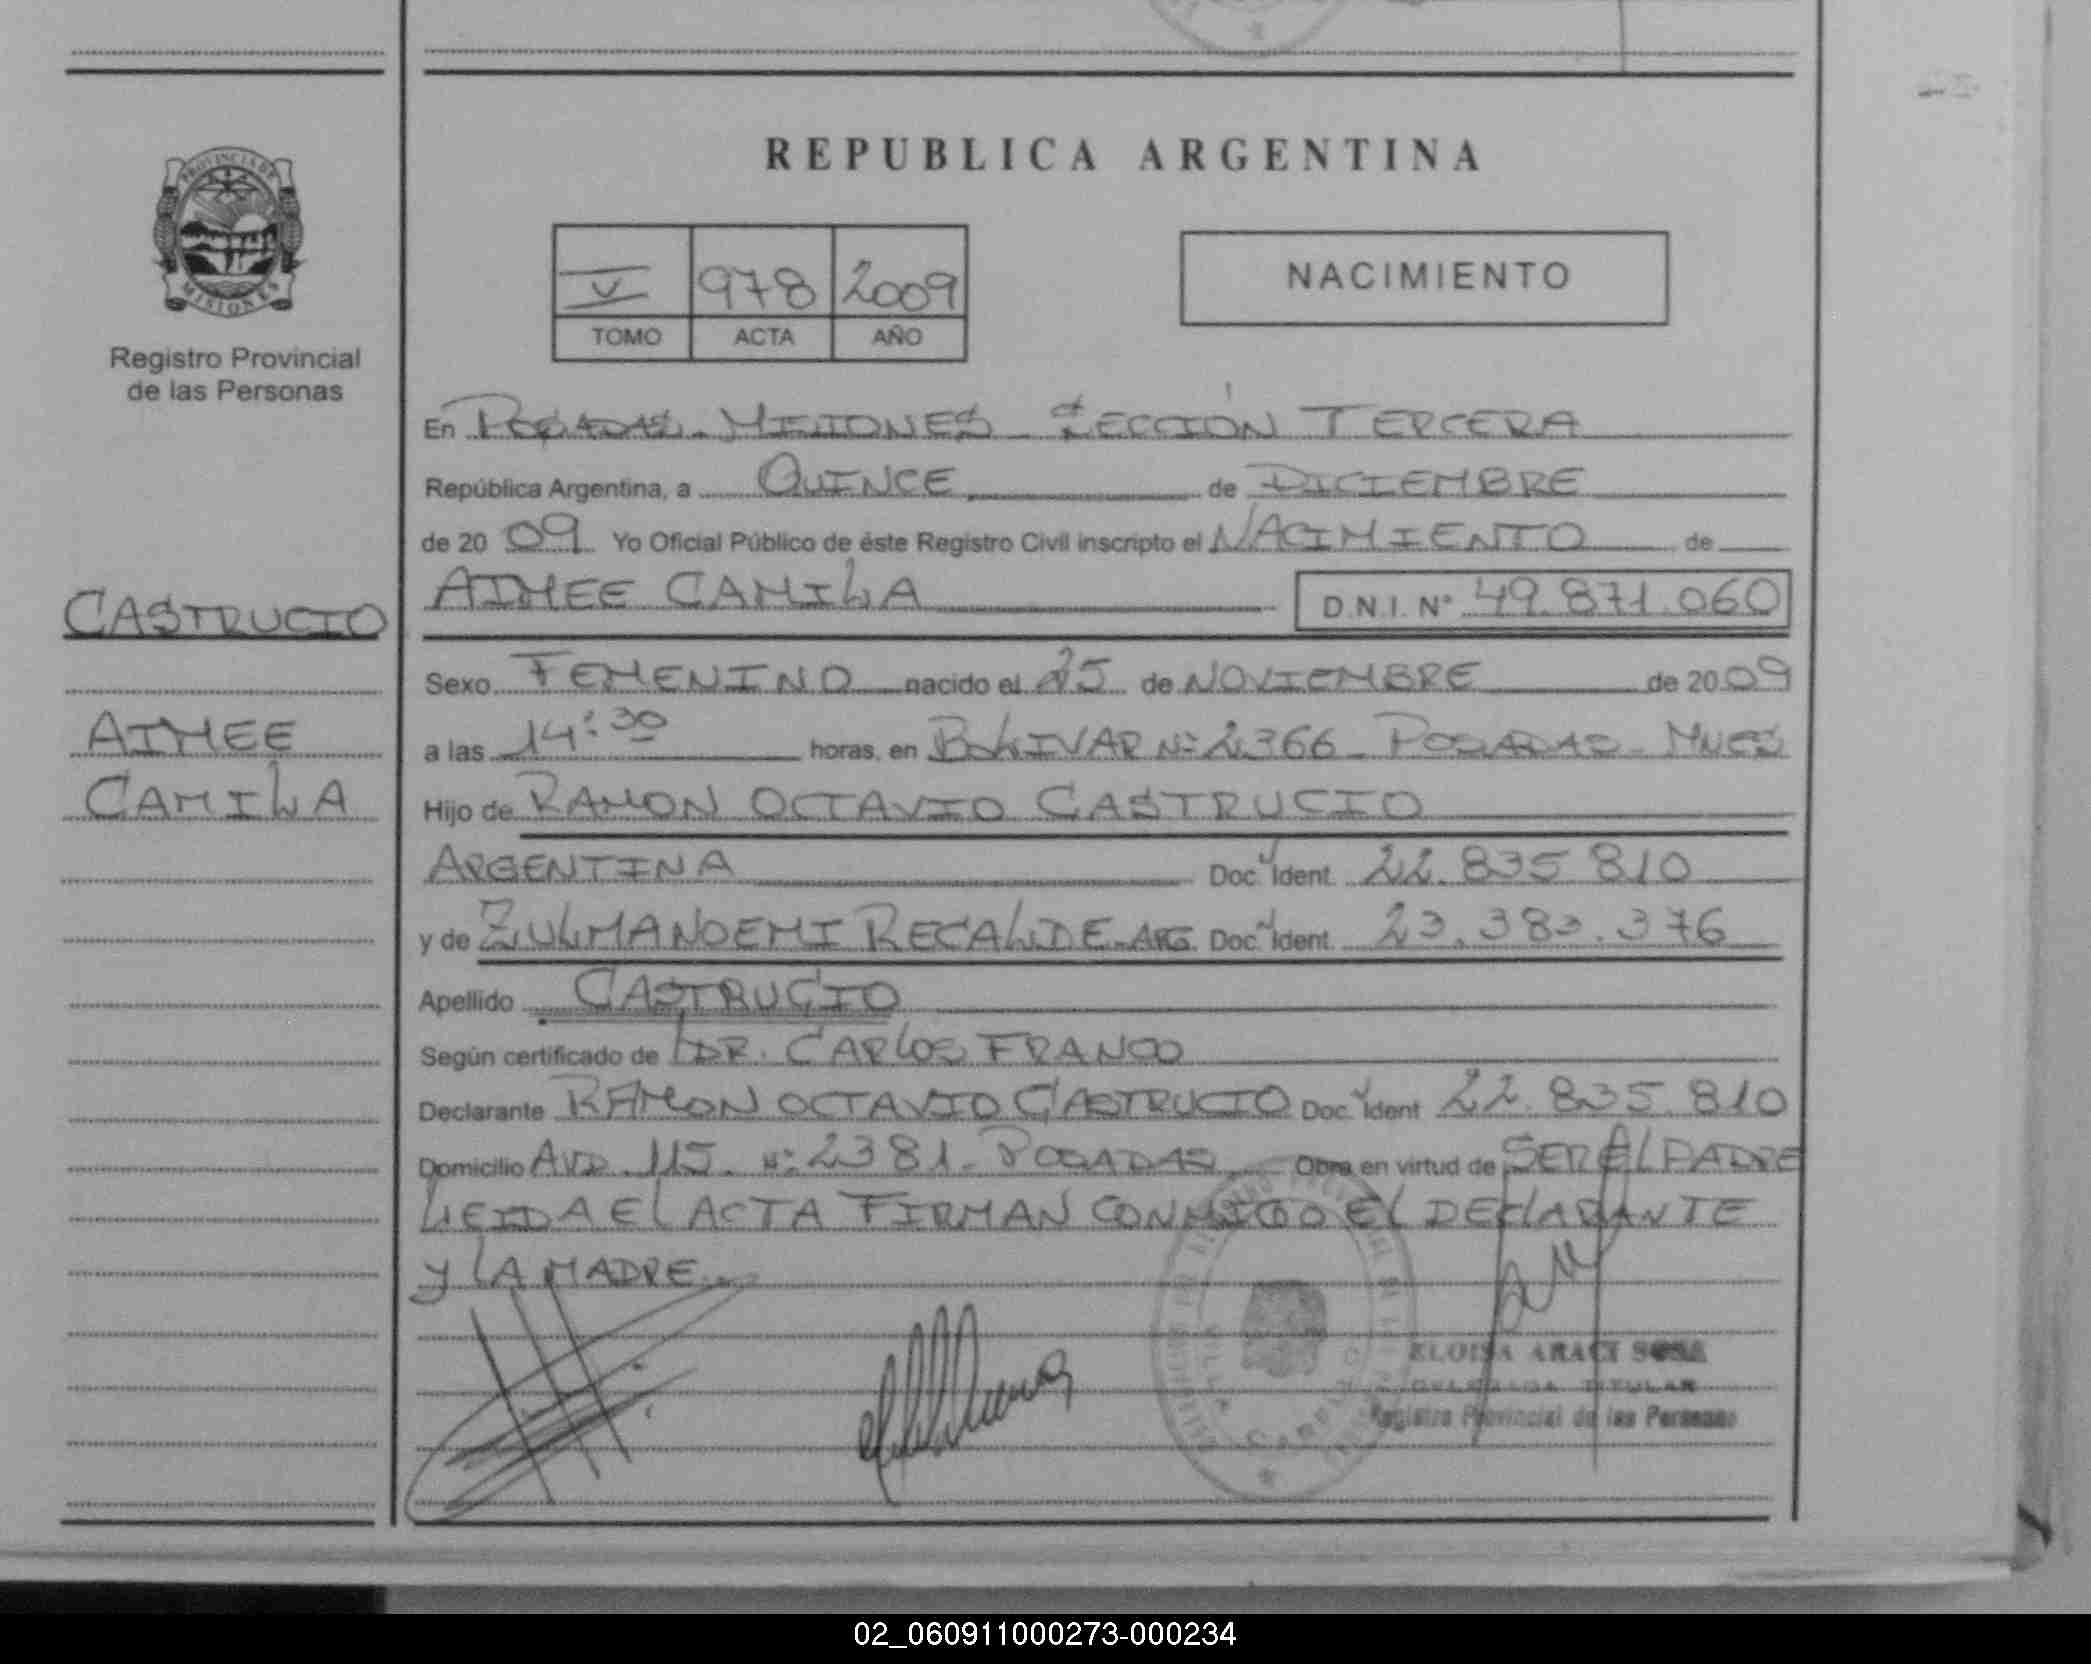 REPUBLICA ARGENTINA
PROVINCIA DE MISIONES
V 978 2009
TOMO ACTA AÑO
NACIMIENTO
Registro Provincial
de las Personas
En POSADAS - MISIONES - SECCIÓN TERCERA
República Argentina, a QUINCE de DICIEMBRE
de 20 09 Yo Oficial Público de éste Registro Civil inscripto el NACIMIENTO de
CASTRUCIO
AIMEE CAMILA D.N.I. N° 49.871.060
Sexo FEMENINO nacido el 25 de NOVIEMBRE de 20 09
AIMEE
a las 14:30 horas, en BOLIVAR N° 2366 - POSADAS - MNES
CAMILA
Hijo de RAMON OCTAVIO CASTRUCIO
ARGENTINA Doc. Ident. 22.835.810
y de ZULMA NOEMI RECALDE - ARG. Doc. Ident. 23.383.376
Apellido CASTRUCIO
Según certificado de DR. CARLOS FRANCO
Declarante RAMON OCTAVIO CASTRUCIO Doc. Ident 22.835.810
Domicilio AVD. 115 N° 2381 - POSADAS Obra en virtud de SER EL PADRE
LEIDA EL ACTA FIRMAN CONMIGO EL DECLARANTE
Y LA MADRE
ELOISA ARACI SOSA
DELEGADA TITULAR
Registro Provincial de las Personas
02_060911000273-000234